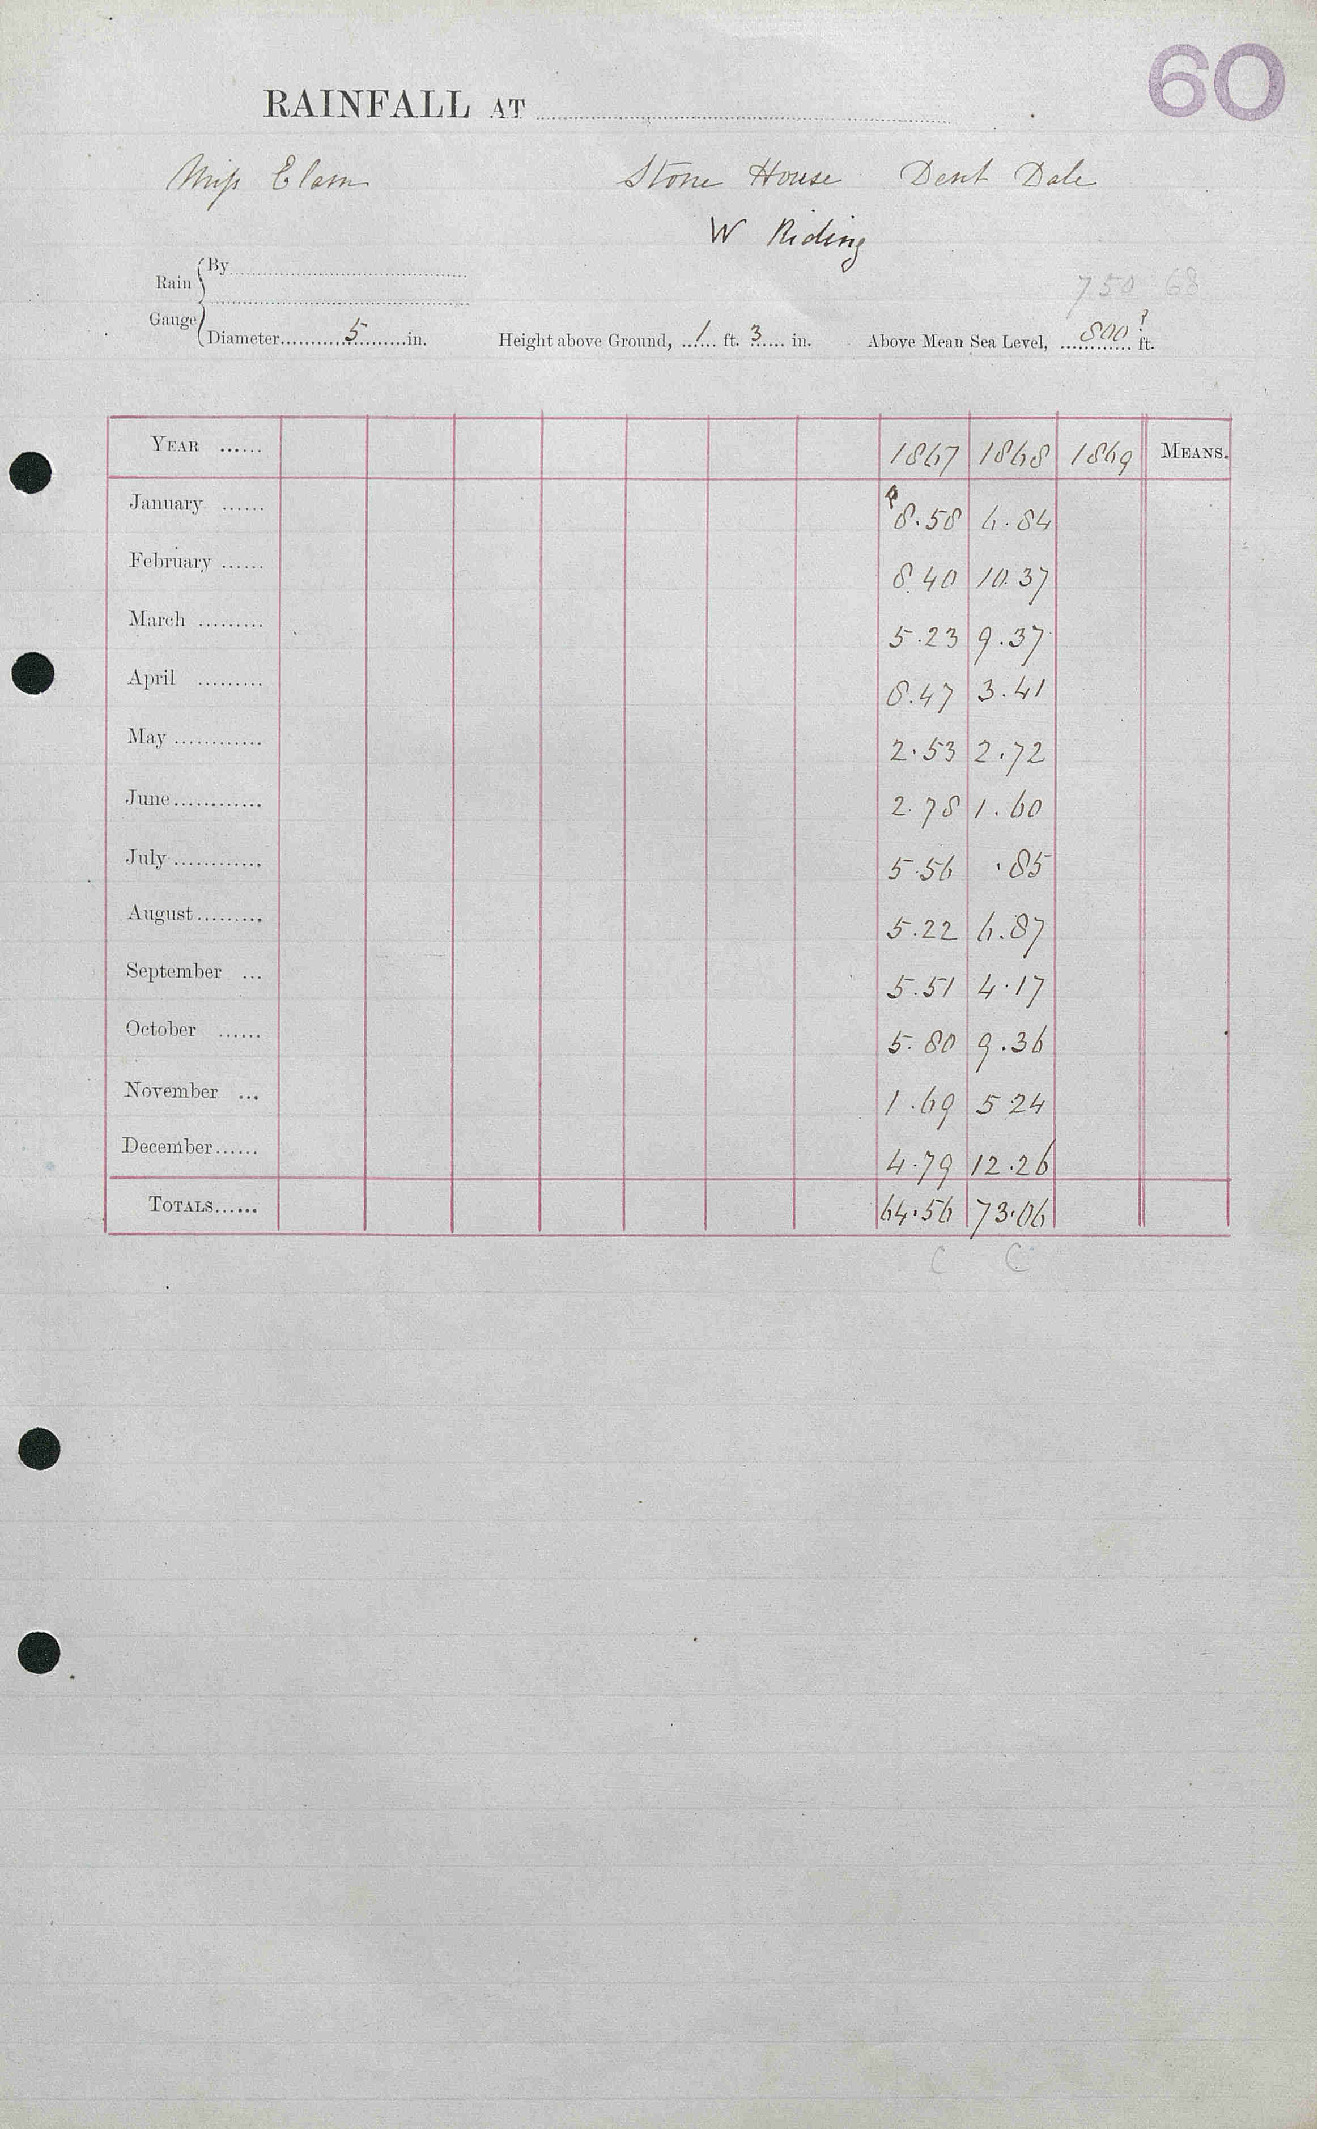 60
RAINFALL AT
Miss Elam Stone House Dent Dale
W Riding
Rain Gauge By
750 68
Diameter 5 in. Height above Ground, 1 ft. 3 in. Above Mean Sea Level, 800? ft.
YEAR ...... 1867 1868 1869 MEANS.
January ...... 8.58 6.84
February ...... 8.40 10.37
March ......... 5.23 9.37
April ......... 8.47 3.41
May ............ 2.53 2.72
June ............ 2.78 1.60
July ............ 5.56 .85
August ......... 5.22 6.87
September ... 5.51 4.17
October ...... 5.80 9.36
November ... 1.69 5 24
December ...... 4.79 12.26
TOTALS ...... 64.56 73.06
C C